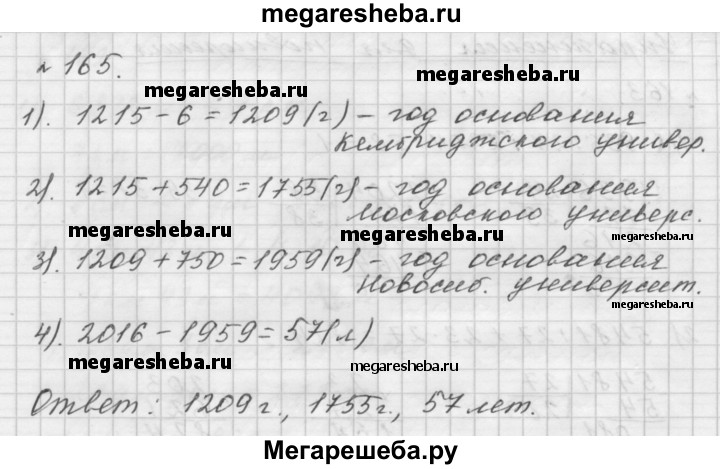 megaresheba.ru
№ 165.
megaresheba.ru megaresheba.ru
1). 1215 - 6 = 1209 (г) - год основания
Кембриджского универ.
2). 1215 + 540 = 1755 (г) - год основания
Московского универс.
megaresheba.ru megaresheba.ru megaresheba.ru
3). 1209 + 750 = 1959 (г) - год основания
Новосиб. университ.
megaresheba.ru
4). 2016 - 1959 = 57 (л)
megaresheba.ru megaresheba.ru
Ответ: 1209 г., 1755 г., 57 лет.
Мегарешеба.ру